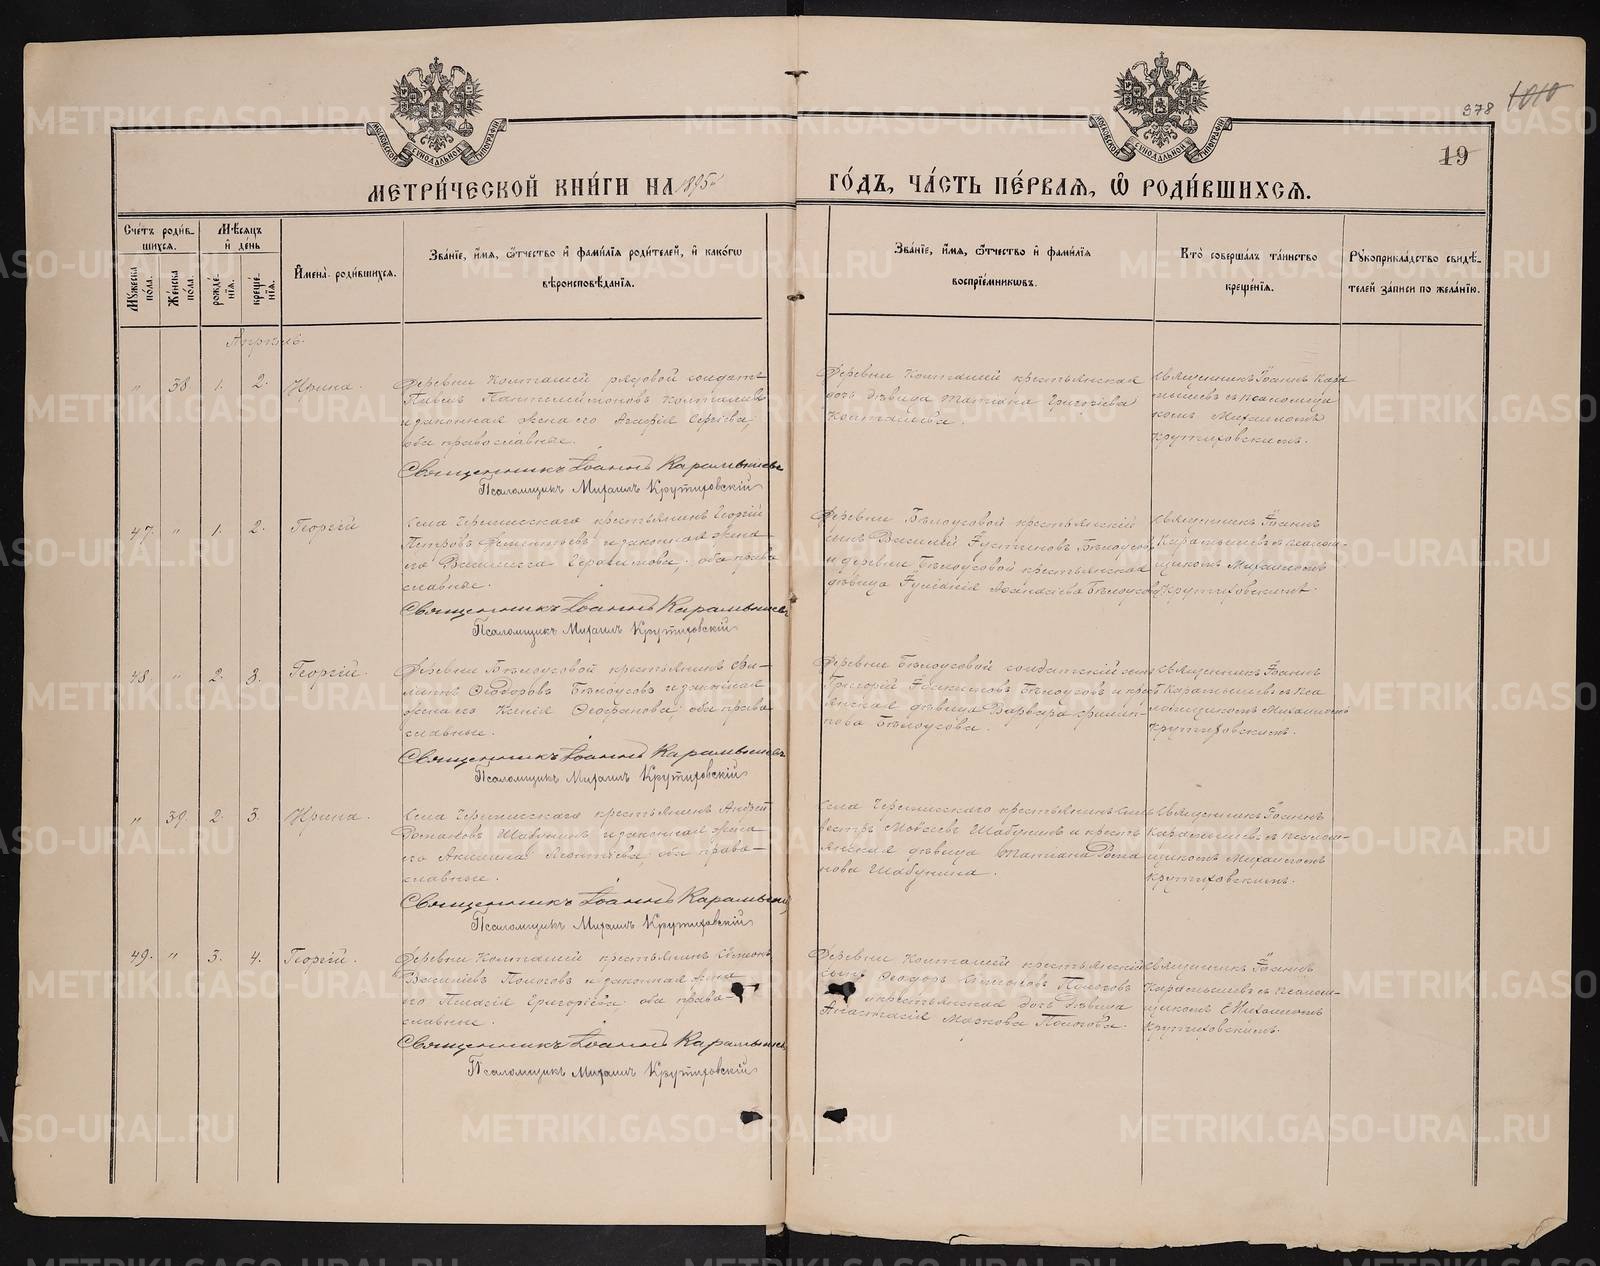 378
1010
19
МОСКОВСКОЙ СУНОДАЛЬНОЙ ТИПОГРАФІИ
МОСКОВСКОЙ СУНОДАЛЬНОЙ ТИПОГРАФІИ
МЕТРИ́ЧЕСКОЙ КНИ́ГИ НА 1895й
ГО́ДЪ, ЧА́СТЬ ПЕ́РВАЯ, Ѡ РОДИ́ВШИХСЯ.
Сче́тъ роди́вшихся.
Му́жеска по́ла.
Же́нска по́ла.
Мѣ́сяцъ и де́нь
рожде́нія.
креще́нія.
Имена̀ роди́вшихся.
Зва́ніе, и́мя, ѻ҆́тчество и фами́лія роди́телей, и како́гѡ
вѣроисповѣ́данія.
Зва́ніе, и́мя, ѻ҆́тчество и фами́лія
воспріе́мникѡвъ.
Кто̀ соверша́лъ та́инство
креще́нія.
Рукоприкла́дство свидѣ́телей за́писи по жела́нію.
Апрѣль.
" 38 1. 2. Ирина.
Деревни Колташей рядовой солдатъ
Павелъ Пантелеймоновъ Колташевъ
и законная жена его Агафія Сергіева,
оба православные.
Священникъ Іоаннъ Карамышевъ
Псаломщикъ Михаилъ Крутиховскій
Деревни Колташей крестьянская
дочь дѣвица Татіана Григоріева
Колташева.
Священникъ Іоаннъ Карамышевъ съ псаломщикомъ Михаиломъ
Крутиховскимъ.
47. " 1. 2. Георгій
Села Черемисскаго крестьянинъ Георгій
Петровъ и законная жена
его Василисса Герасимова, оба православные.
Священникъ Іоаннъ Карамышевъ
Псаломщикъ Михаилъ Крутиховскій
Деревни Бѣлоусовой крестьянскій
сынъ Василій Іустиновъ Бѣлоусовъ
и деревни Бѣлоусовой крестьянская
дѣвица Іуліанія Аѳанасіева Бѣлоусова
Священникъ Іоаннъ
Карамышевъ съ псаломщикомъ Михаиломъ
Крутиховскимъ.
48. " 2. 3. Георгій.
Деревни Бѣлоусовой крестьянинъ Филиппъ Ѳеодоровъ Бѣлоусовъ и законная
жена его Ксенія Ѳеофанова, оба православные.
Священникъ Іоаннъ Карамышевъ
Псаломщикъ Михаилъ Крутиховскій
Деревни Бѣлоусовой солдатскій сынъ
Григорій Іоакимовъ Бѣлоусовъ и крестьянская дѣвица Варвара Филиппова Бѣлоусова.
Священникъ Іоаннъ
Карамышевъ съ псаломщикомъ Михаиломъ
Крутиховскимъ.
" 39. 2. 3. Ирина.
Села Черемисскаго крестьянинъ Андрей
Романовъ Шабунинъ и законная жена
его Акилина Леонтіева, оба православные.
Священникъ Іоаннъ Карамышевъ
Псаломщикъ Михаилъ Крутиховскій
Села Черемисскаго крестьянинъ Сильвестръ Моѵсеевъ Шабунинъ и крестьянская дѣвица Татіана Романова Шабунина.
Священникъ Іоаннъ
Карамышевъ съ псаломщикомъ Михаиломъ
Крутиховскимъ.
49. " 3. 4. Георгій.
Деревни Колташей крестьянинъ Симеонъ
Василіевъ Пологовъ и законная жена
его Пелагія Григоріева, оба православные.
Священникъ Іоаннъ Карамышевъ
Псаломщикъ Михаилъ Крутиховскій
Деревни Колташей крестьянскій
сынъ Ѳеодоръ Пологовъ
и крестьянская дочь дѣвица
Анастасія Маркова Пологова.
Священникъ Іоаннъ
Карамышевъ съ псаломщикомъ Михаиломъ
Крутиховскимъ.
METRIKI.GASO-URAL.RU